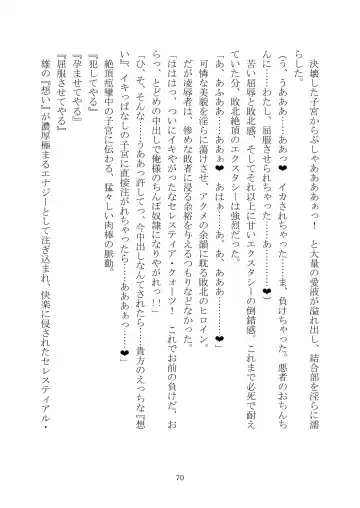 決壊した子宮からぷしゃああああぁっ! と大量の愛液が溢れ出し、結合部を淫らに濡
らした。
(う、うあああ……あぁっ♥ イカされちゃった……ま、負けちゃった。悪者のおちんち
んに……わたし、屈服させられちゃった……あ…………♥)
苦い屈辱と敗北感。そしてそれ以上に甘いエクスタシーの倒錯感。これまで必死で耐え
ていた分、敗北絶頂のエクスタシーは強烈だった。
「あ、あふああ……あぁ♥ あはぁ……あ、あ、あああ……♥」
可憐な美貌を淫らに蕩けさせ、アクメの余韻に耽る敗北のヒロイン。
だが凌辱者は、惨めな敗者に浸る余裕を与えるつもりなどなかった。
「はははっ、ついにイキやがったなセレスティア・クォーツ! これでお前の負けだ、お
らっ、とどめの中出しで俺様のちんぽ奴隷になりやがれっ!!」
「ひ、そ、そんな……うああっ許してっ、今中出しなんてされたら……貴方のえっちな『想
い』、イキっぱなしの子宮に直接注がれちゃったら……あああぁっ……♥」
絶頂痙攣中の子宮に伝わる、猛々しい肉棒の脈動。
『犯してやる』
『孕ませてやる』
『屈服させてやる』
雄の『想い』が濃厚極まるエナジーとして注ぎ込まれ、快楽に侵されたセレスティアル・
70